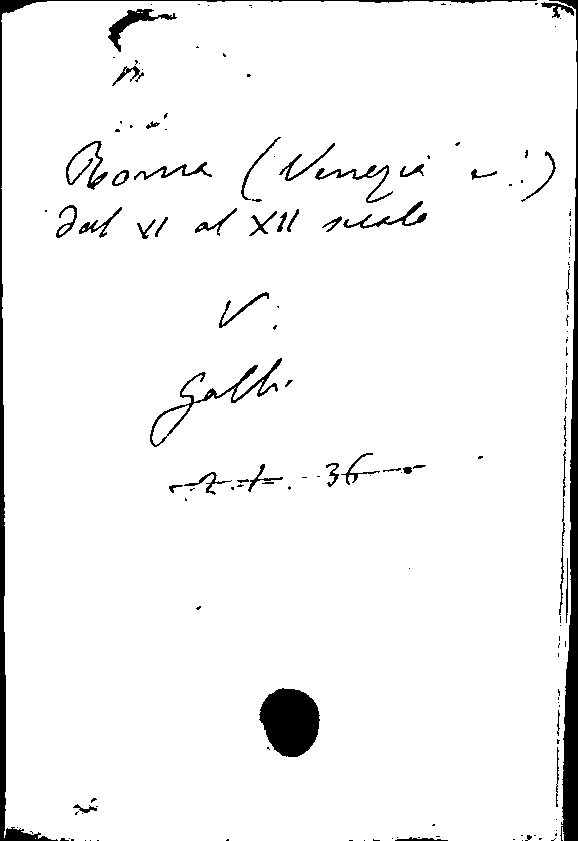 Roma (Venezia
dal VI al XII secolo
V.
Galli
2. t. 36